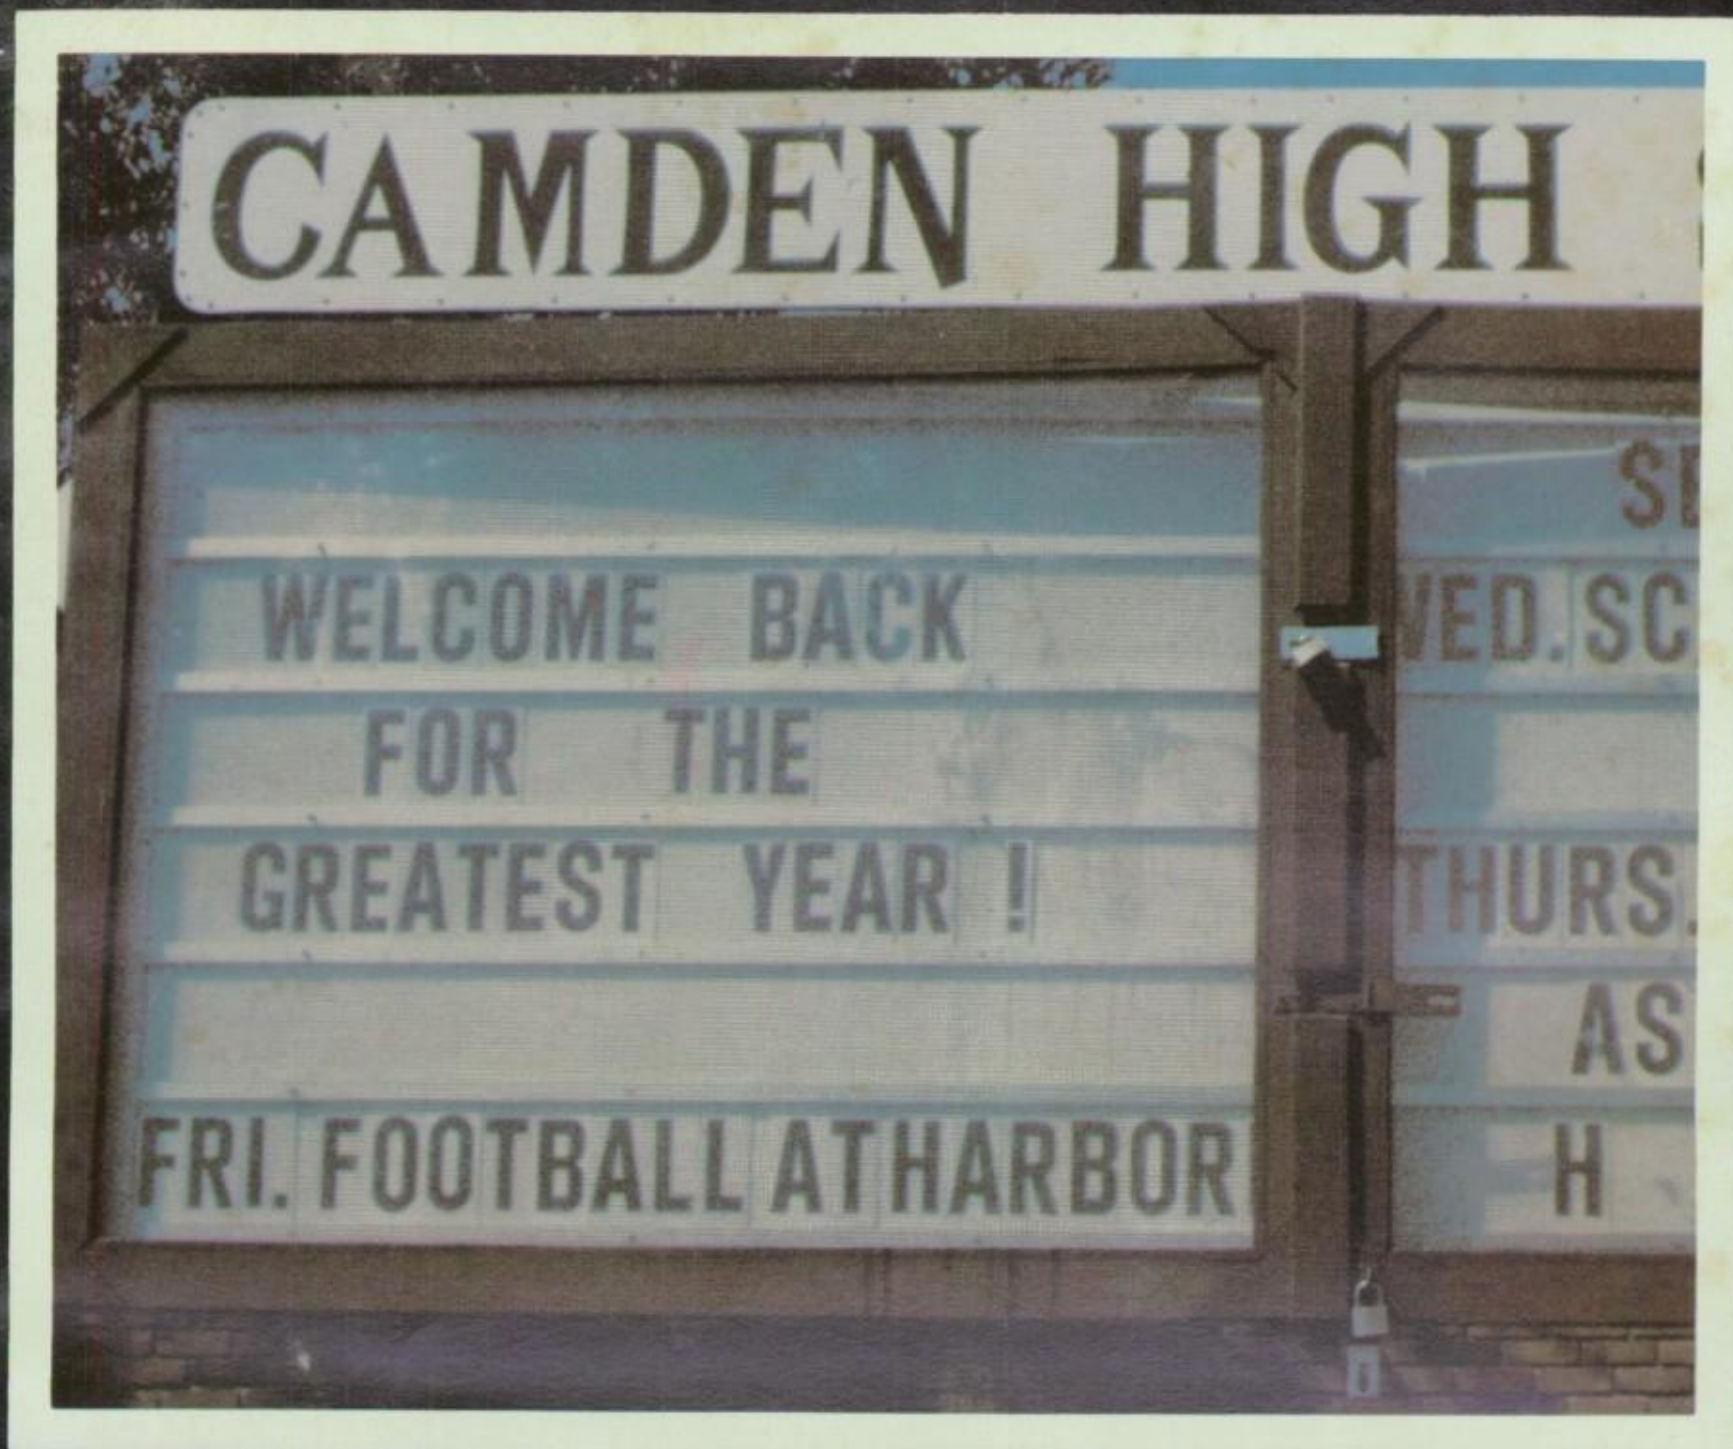 CAMDEN HIGH
WELCOME BACK
FOR THE
GREATEST YEAR !
FRI. FOOTBALL AT HARBOR
WED. SC
THURS.
AS
H